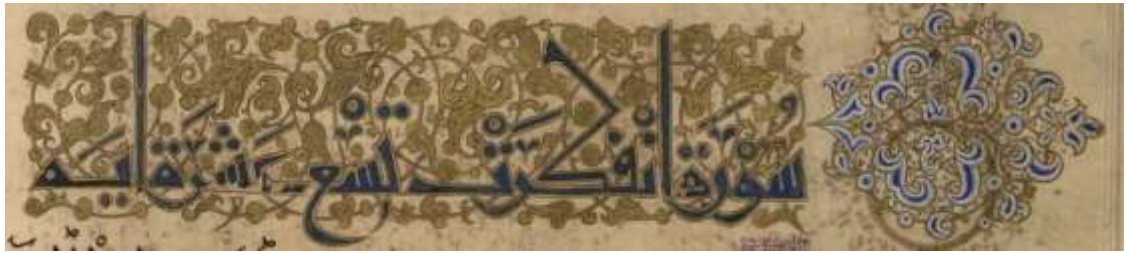 سورة انفطرت تسع عشرة اية